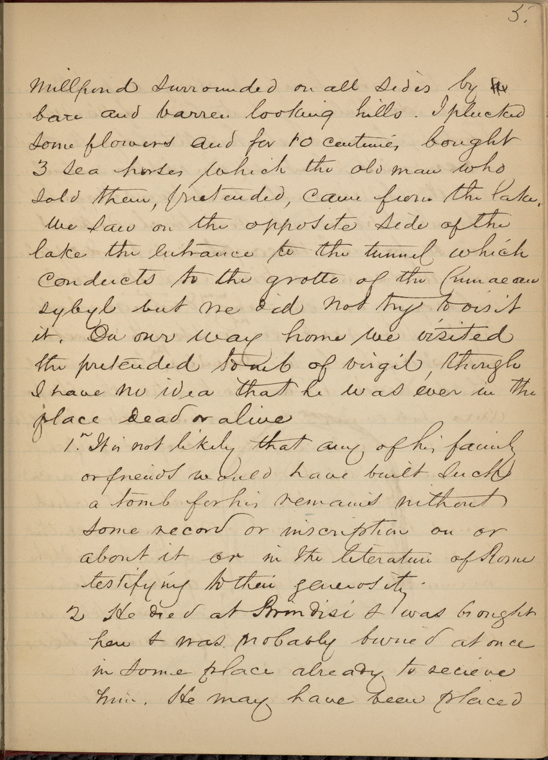 5.
Millpond surrounded on all sides by
bare and barren looking hills. I plucked
some flowers and for 10 centimes bought
3 sea horses which the old man who
sold them, pretended, came from the lake.
We saw on the opposite side of the
lake the entrance to the tunnel which
conducts to the grotto of the Cumaean
sybyl but we did not try to visit
it. On our way home we visited
the pretended tomb of virgil, though
I have no idea that he was ever in the
place dead or alive
1. It is not likely that any of his family
or friends would have built such
a tomb for his remains without
some record or inscription on or
about it or in the literature of Rome
testifying to their generosity.
2 He died at Brindisi & was brought
here & was probably buried at once
in some place already to recieve
him. He may have been placed